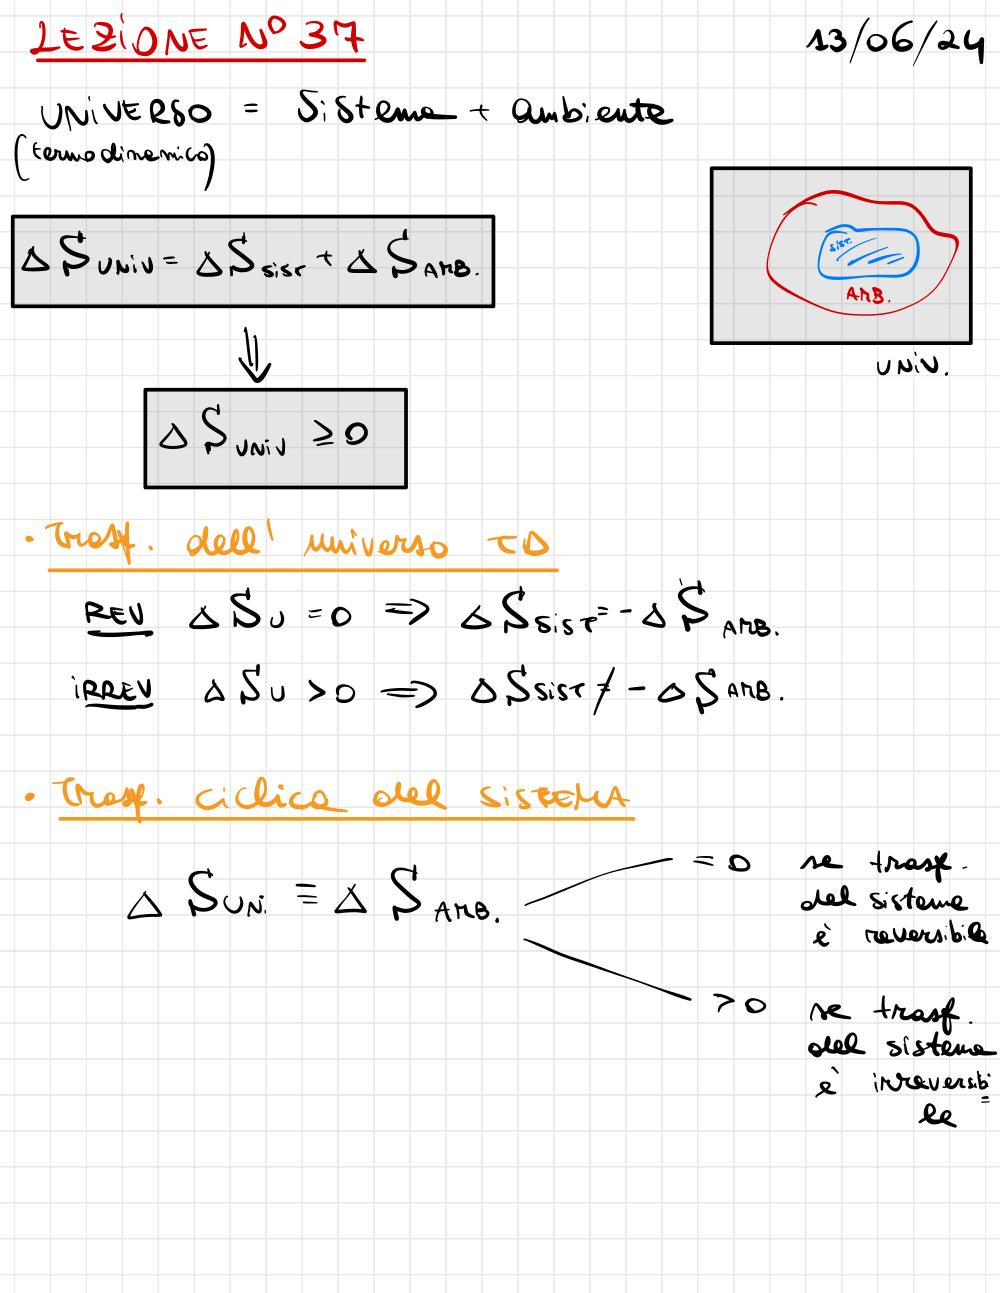 LEZIONE N° 37
13/06/24
UNIVERSO = Sistema + ambiente
(termodinamico)
ΔS UNIV = ΔS SIST + ΔS AMB.
SIST.
AMB.
UNIV.
⇓
ΔS UNIV ≥ 0
• Trasf. dell' universo TD
REV ΔS U = 0 ⇒ ΔS SIST = - ΔS AMB.
IRREV ΔS U > 0 ⇒ ΔS SIST ≠ - ΔS AMB.
• Trasf. ciclica del SISTEMA
ΔS UNI. ≡ ΔS AMB.
= 0 se trasf.
del sistema
è reversibile
> 0 se trasf.
del sistema
è irreversibi
le